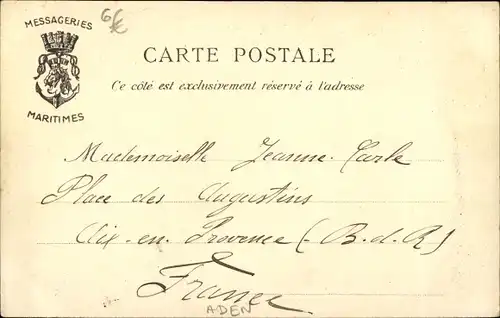 MESSAGERIES
MARITIMES
6€
CARTE POSTALE
Ce côté est exclusivement réservé à l'adresse
Mademoiselle Jeanne Carle
Place des Augustins
Aix-en-Provence (B.d.R)
France
ADEN